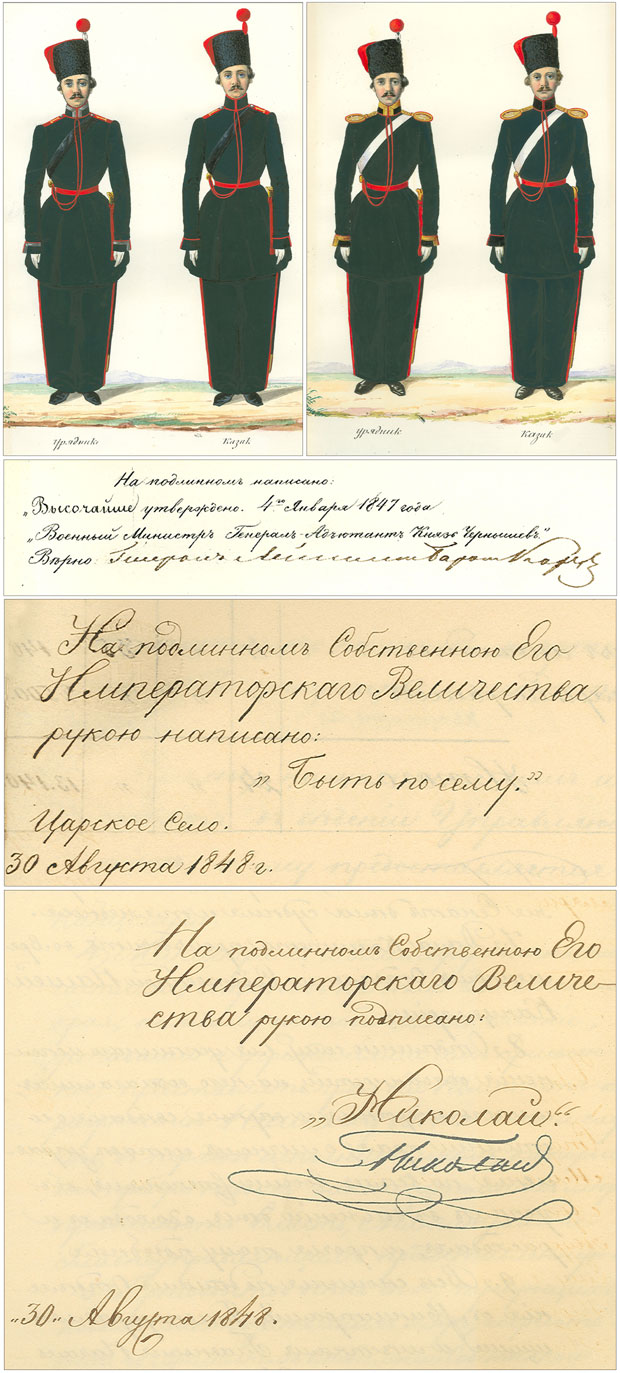 Урядникъ
Казак
Урядник
Казак
На подлинномъ написано:
„Высочайше утверждено. 4го Января 1847 года
„Военный Министръ Генералъ-Адъютантъ Князь Чернышевъ"
Вѣрно: Генералъ
На подлинномъ Собственною Его
Императорскаго Величества
рукою написано:
„ Быть по сему."
Царское Село.
30 Августа 1848 г.
На подлинномъ Собственною Его
Императорскаго Величе-
ства рукою подписано:
„Николай".
Николай
„30" Августа 1848.